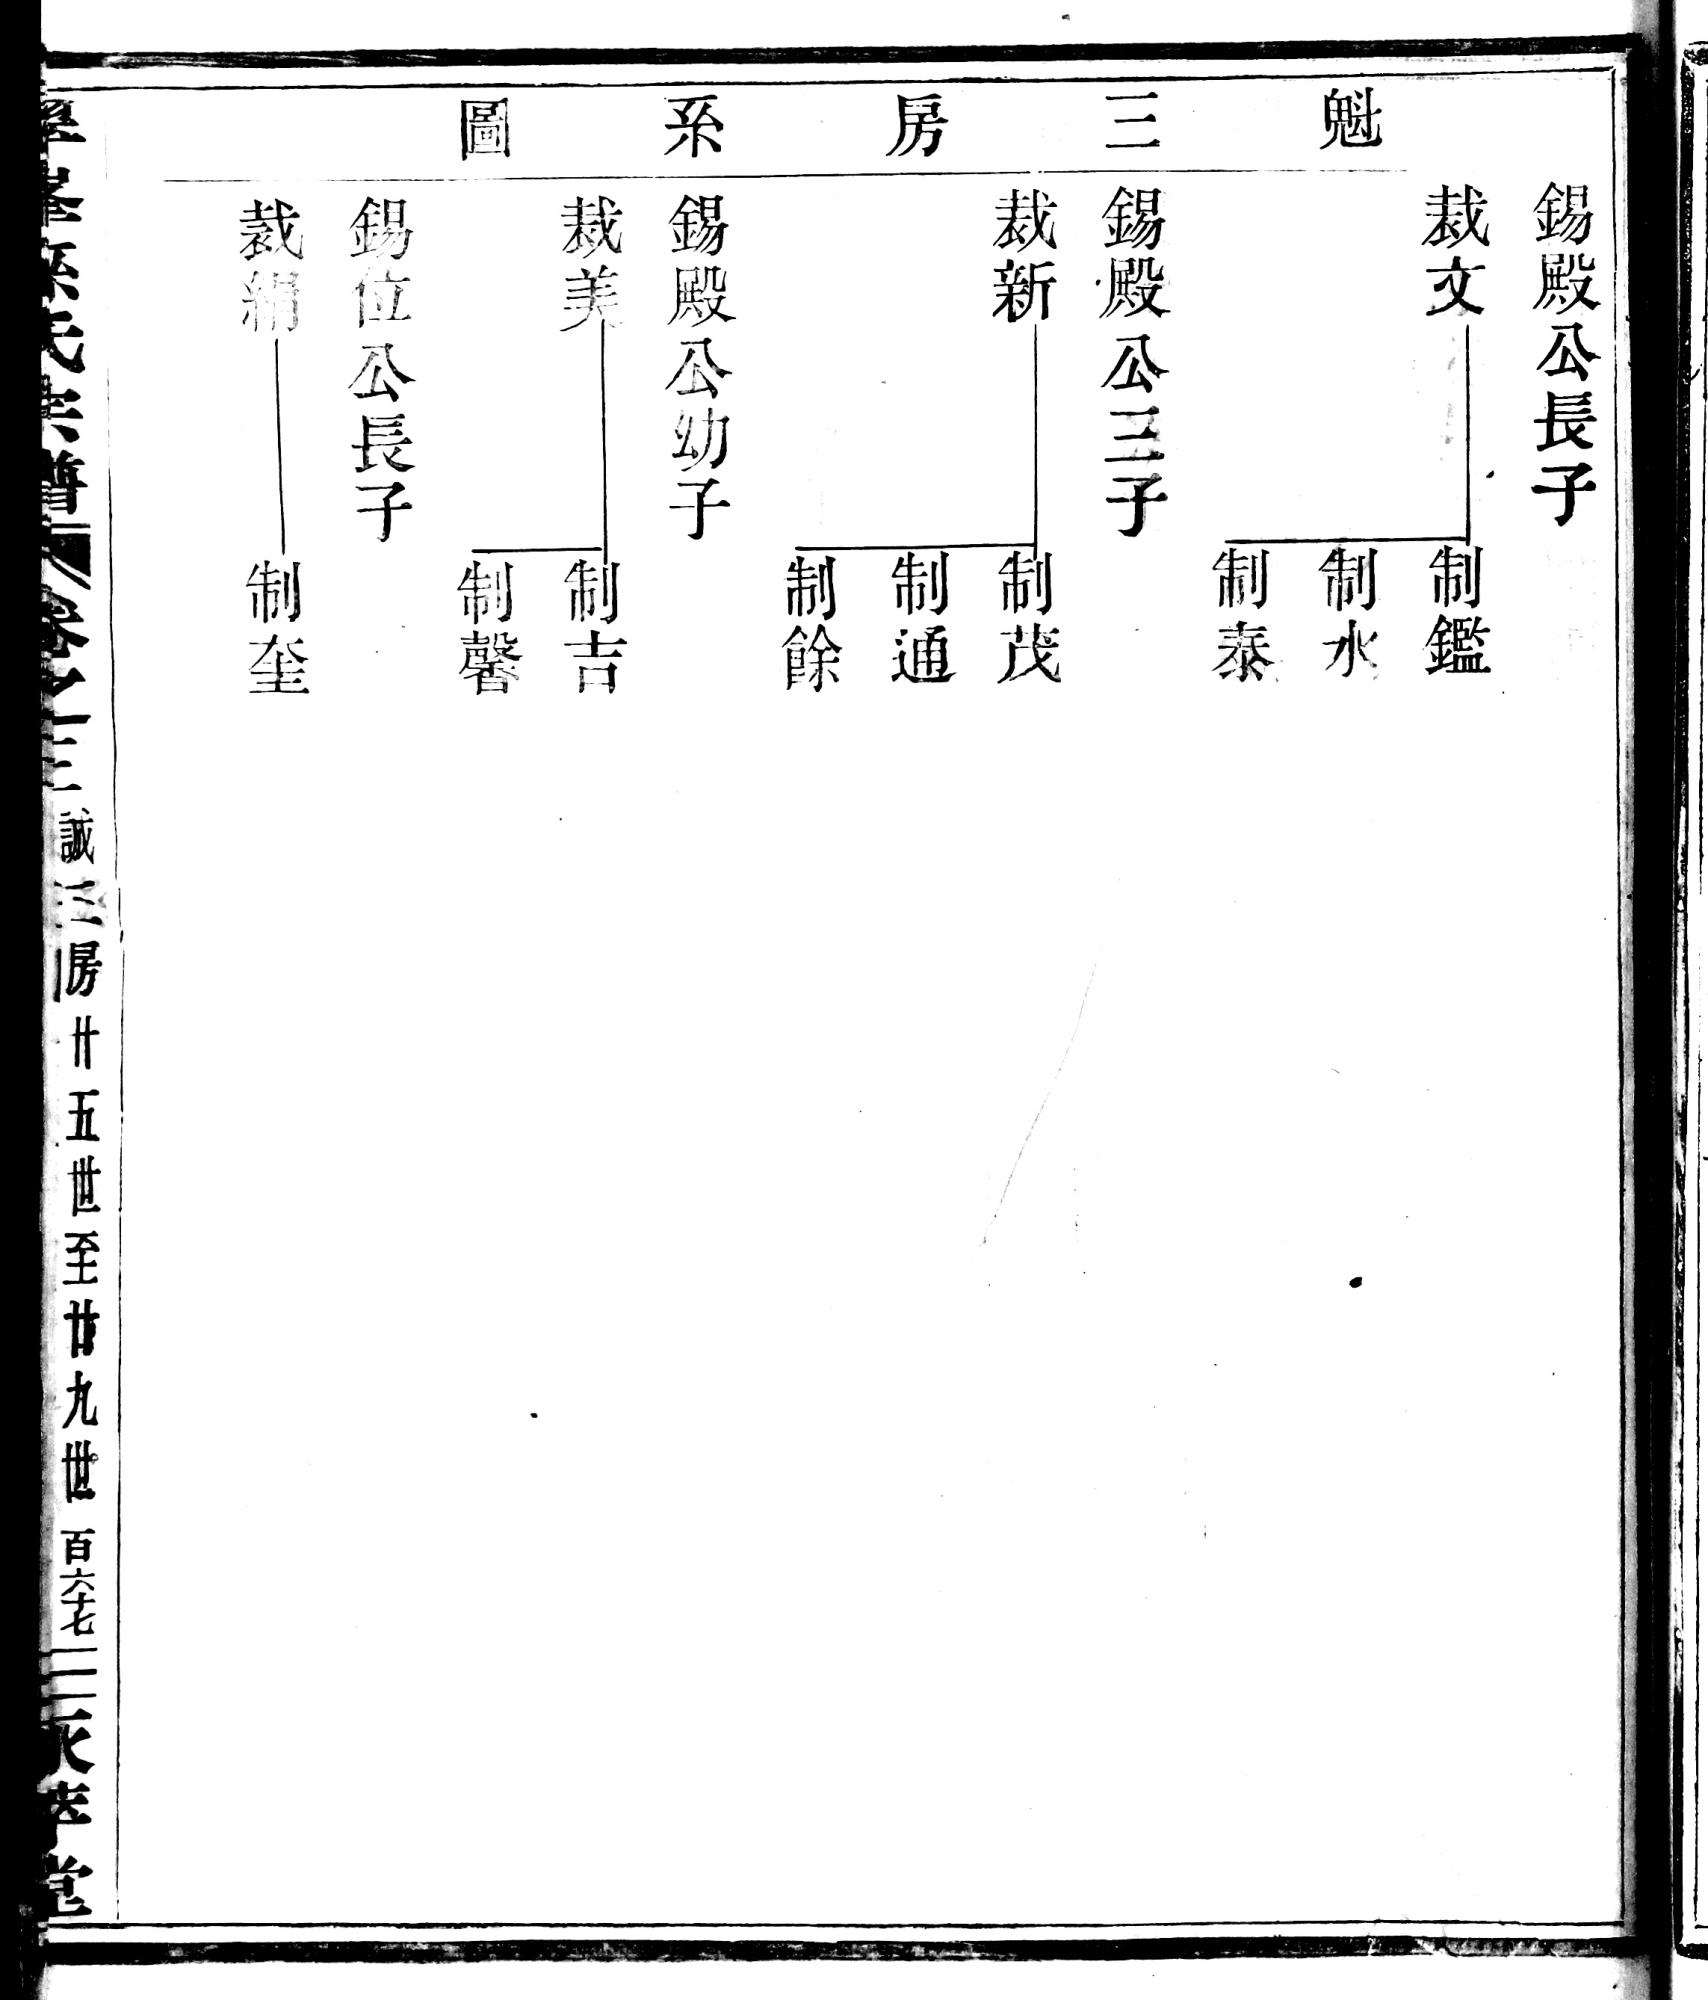 魁三房系圖
錫殿公長子
裁文
制鑑
制水
制泰
錫殿公三子
裁新
制茂
制通
制餘
錫殿公幼子
裁美
制吉
制馨
錫位公長子
裁絹
制奎
氏宗譜 卷之三 誠三房廿五世至廿九世 百六十七 永孝堂